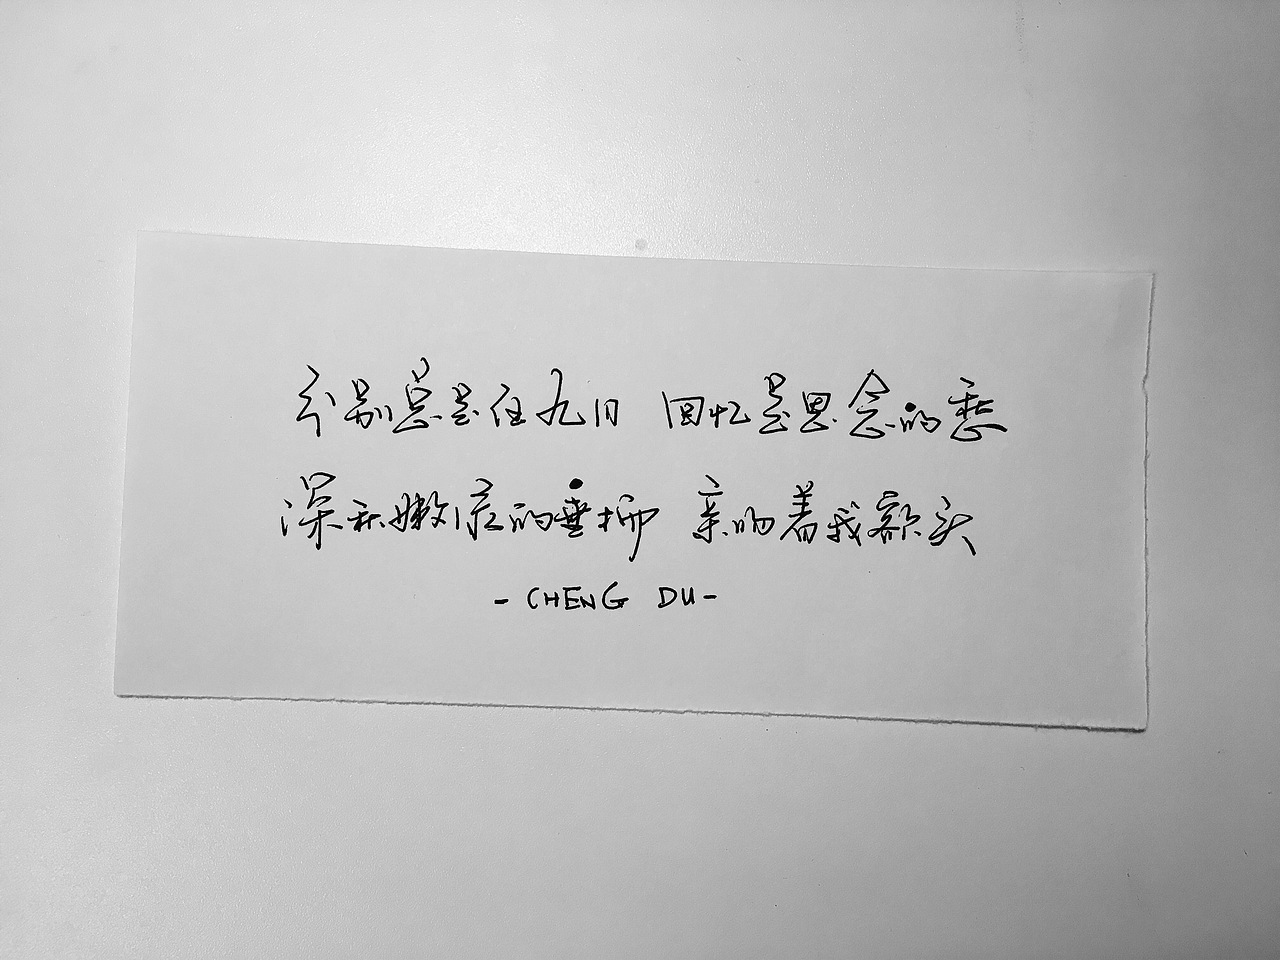 分别总是在九月 回忆是思念的愁
深秋嫩绿的垂柳 亲吻着我额头
- CHENG DU -